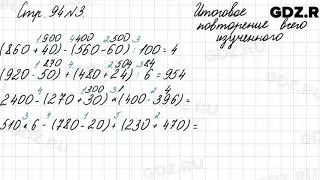 Стр. 94 № 3.
Итоговое
повторение всего
изученного
GDZ.R
1 900 4 400 2 500 3
(860 + 40) - (560 - 60) : 100 = 4
1 870 4 2 504 3 84
(920 - 50) + (480 + 24) : 6 = 954
1 300 3 2 4
2400 - (270 + 30) * (400 - 396) =
3 4 1 5 2
510 * 6 - (780 - 20) + (230 + 470) =